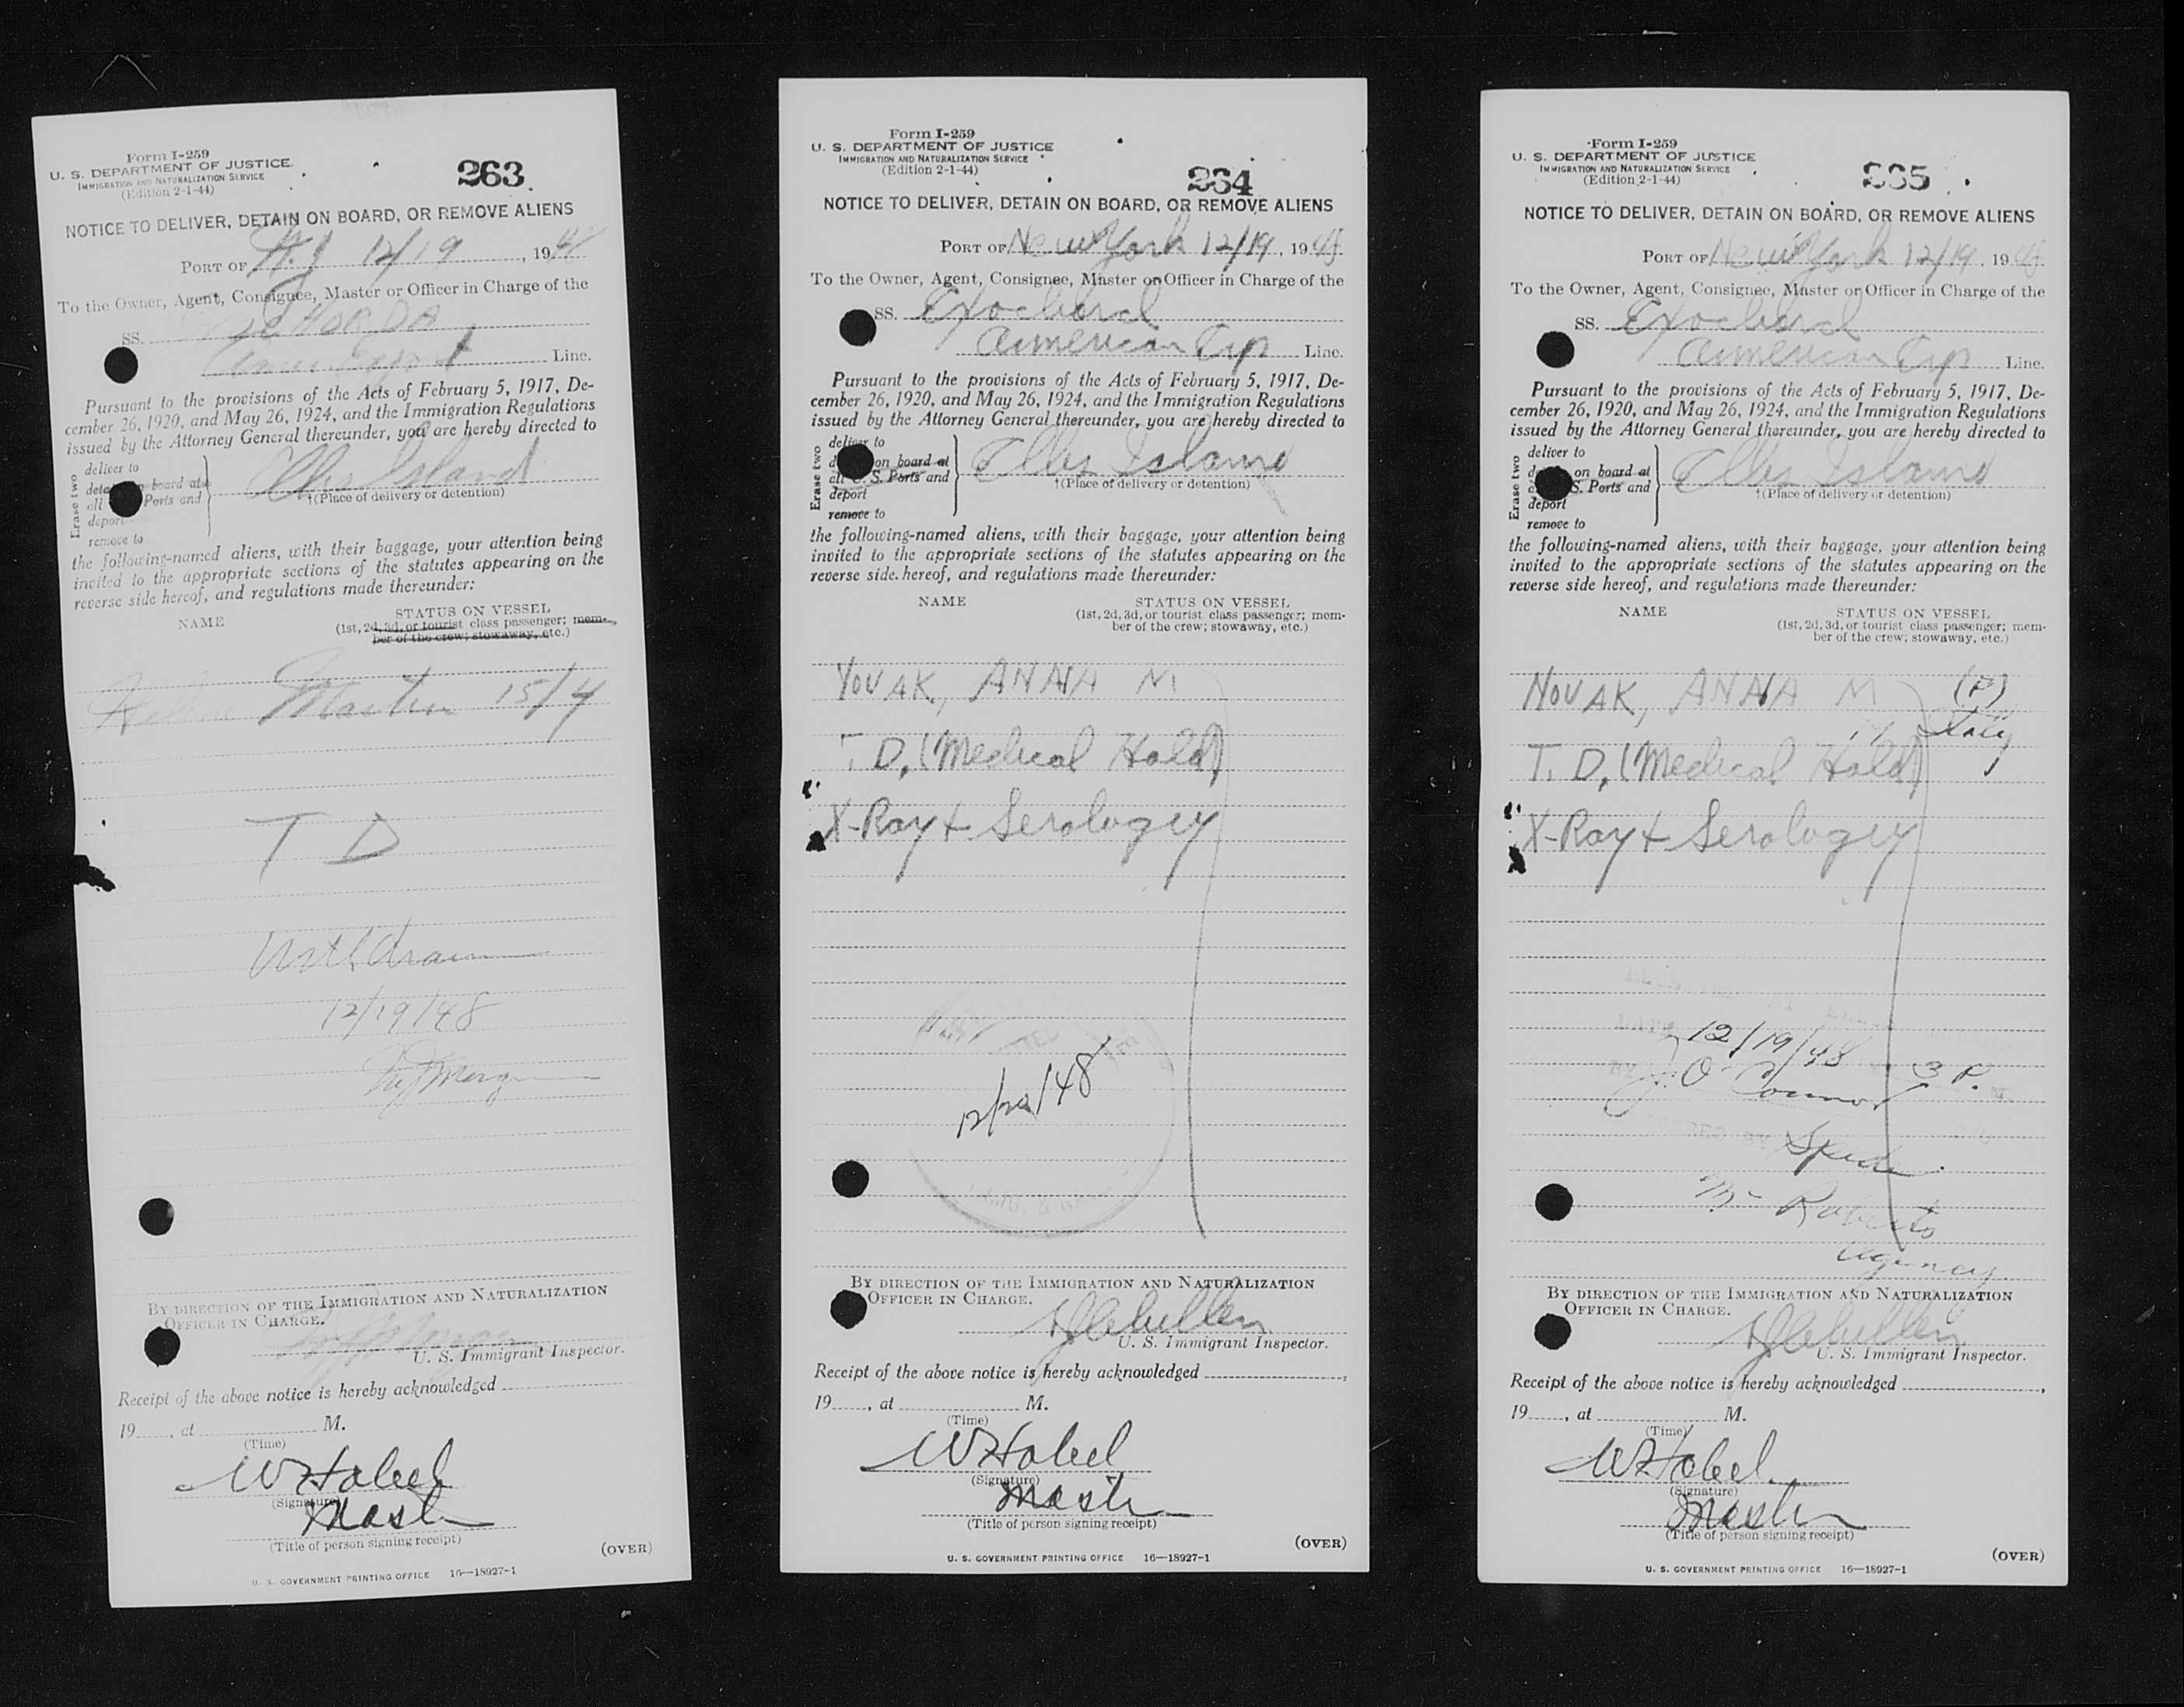 Form I-259
U. S. DEPARTMENT OF JUSTICE
IMMIGRATION AND NATURALIZATION SERVICE
(Edition 2-1-44)
263
NOTICE TO DELIVER, DETAIN ON BOARD, OR REMOVE ALIENS
PORT OF 12/19, 194
To the Owner, Agent, Consignee, Master or Officer in Charge of the
SS.
Line.
Pursuant to the provisions of the Acts of February 5, 1917, De-
cember 26, 1920, and May 26, 1924, and the Immigration Regulations
issued by the Attorney General thereunder, you are hereby directed to
Erase two
deliver to
board at
all Ports and
deport
remove to
Ellis Island
†(Place of delivery or detention)
the following-named aliens, with their baggage, your attention being
invited to the appropriate sections of the statutes appearing on the
reverse side hereof, and regulations made thereunder:
NAME
STATUS ON VESSEL
(1st, 2d, 3d, or tourist class passenger; mem-
ber of the crew; stowaway, etc.)
Martin 15/4
T D
Withdrawn
12/19/48
BY DIRECTION OF THE IMMIGRATION AND NATURALIZATION
OFFICER IN CHARGE.
U. S. Immigrant Inspector.
Receipt of the above notice is hereby acknowledged
19 , at M.
(Time)
(Signature)
Master
(Title of person signing receipt)
(OVER)
U. S. GOVERNMENT PRINTING OFFICE 16—18927-1
Form I-259
U. S. DEPARTMENT OF JUSTICE
IMMIGRATION AND NATURALIZATION SERVICE
(Edition 2-1-44)
264
NOTICE TO DELIVER, DETAIN ON BOARD, OR REMOVE ALIENS
PORT OF New York 12/19, 1948
To the Owner, Agent, Consignee, Master or Officer in Charge of the
SS. Exochorda
American Exp Line.
Pursuant to the provisions of the Acts of February 5, 1917, De-
cember 26, 1920, and May 26, 1924, and the Immigration Regulations
issued by the Attorney General thereunder, you are hereby directed to
Erase two
deliver to
on board at
all S. Ports and
deport
remove to
Ellis Island
†(Place of delivery or detention)
the following-named aliens, with their baggage, your attention being
invited to the appropriate sections of the statutes appearing on the
reverse side hereof, and regulations made thereunder:
NAME
STATUS ON VESSEL
(1st, 2d, 3d, or tourist class passenger; mem-
ber of the crew; stowaway, etc.)
YOVAK, ANNA M
T. D. (Medical Hold)
X-Ray + Serology
12/20/48
BY DIRECTION OF THE IMMIGRATION AND NATURALIZATION
OFFICER IN CHARGE.
U. S. Immigrant Inspector.
Receipt of the above notice is hereby acknowledged ,
19 , at M.
(Time)
(Signature)
Master
(Title of person signing receipt)
(OVER)
U. S. GOVERNMENT PRINTING OFFICE 16—18927-1
Form I-259
U. S. DEPARTMENT OF JUSTICE
IMMIGRATION AND NATURALIZATION SERVICE
(Edition 2-1-44)
265
NOTICE TO DELIVER, DETAIN ON BOARD, OR REMOVE ALIENS
PORT OF New York 12/19, 1948
To the Owner, Agent, Consignee, Master or Officer in Charge of the
SS. Exochorda
American Exp Line.
Pursuant to the provisions of the Acts of February 5, 1917, De-
cember 26, 1920, and May 26, 1924, and the Immigration Regulations
issued by the Attorney General thereunder, you are hereby directed to
Erase two
deliver to
on board at
S. Ports and
deport
remove to
Ellis Island
†(Place of delivery or detention)
the following-named aliens, with their baggage, your attention being
invited to the appropriate sections of the statutes appearing on the
reverse side hereof, and regulations made thereunder:
NAME
STATUS ON VESSEL
(1st, 2d, 3d, or tourist class passenger; mem-
ber of the crew; stowaway, etc.)
NOVAK, ANNA M (P)
Italy
T. D. (Medical Hold)
X-Ray + Serology
12/19/48
J. O'Connor 3 P.
Mc Roberts
Agency
BY DIRECTION OF THE IMMIGRATION AND NATURALIZATION
OFFICER IN CHARGE.
U. S. Immigrant Inspector.
Receipt of the above notice is hereby acknowledged ,
19 , at M.
(Time)
(Signature)
Master
(Title of person signing receipt)
(OVER)
U. S. GOVERNMENT PRINTING OFFICE 16—18927-1